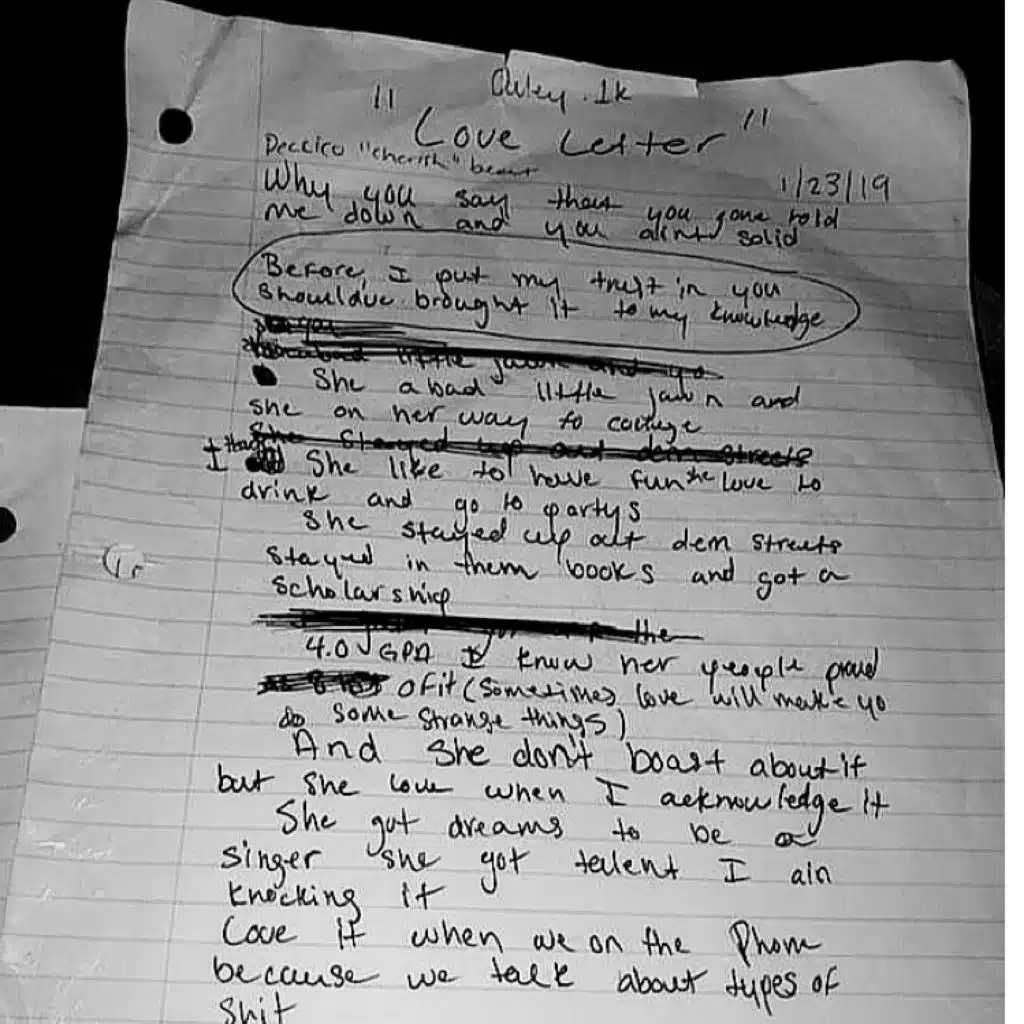 " Love Letter "
"cherish" beat
1/23/19
Why you say that you gone hold
me down and you aint solid
Before I put my trust in you
shouldve brought it to my knowledge
little jawn and yo
She a bad little jawn and
she on her way to college
She stayed up out dem streets
I thought She like to have fun she love to
drink and go to partys
She stayed up out dem streets
stayed in them books and got a
scholarship
the
4.0 GPA I know her people proud
of it (Sometimes love will make yo
do some strange things)
And she don't boast about it
but she love when I acknowledge it
She got dreams to be a
singer she got talent I ain
knocking it
Love it when we on the phone
because we talk about types of
shit